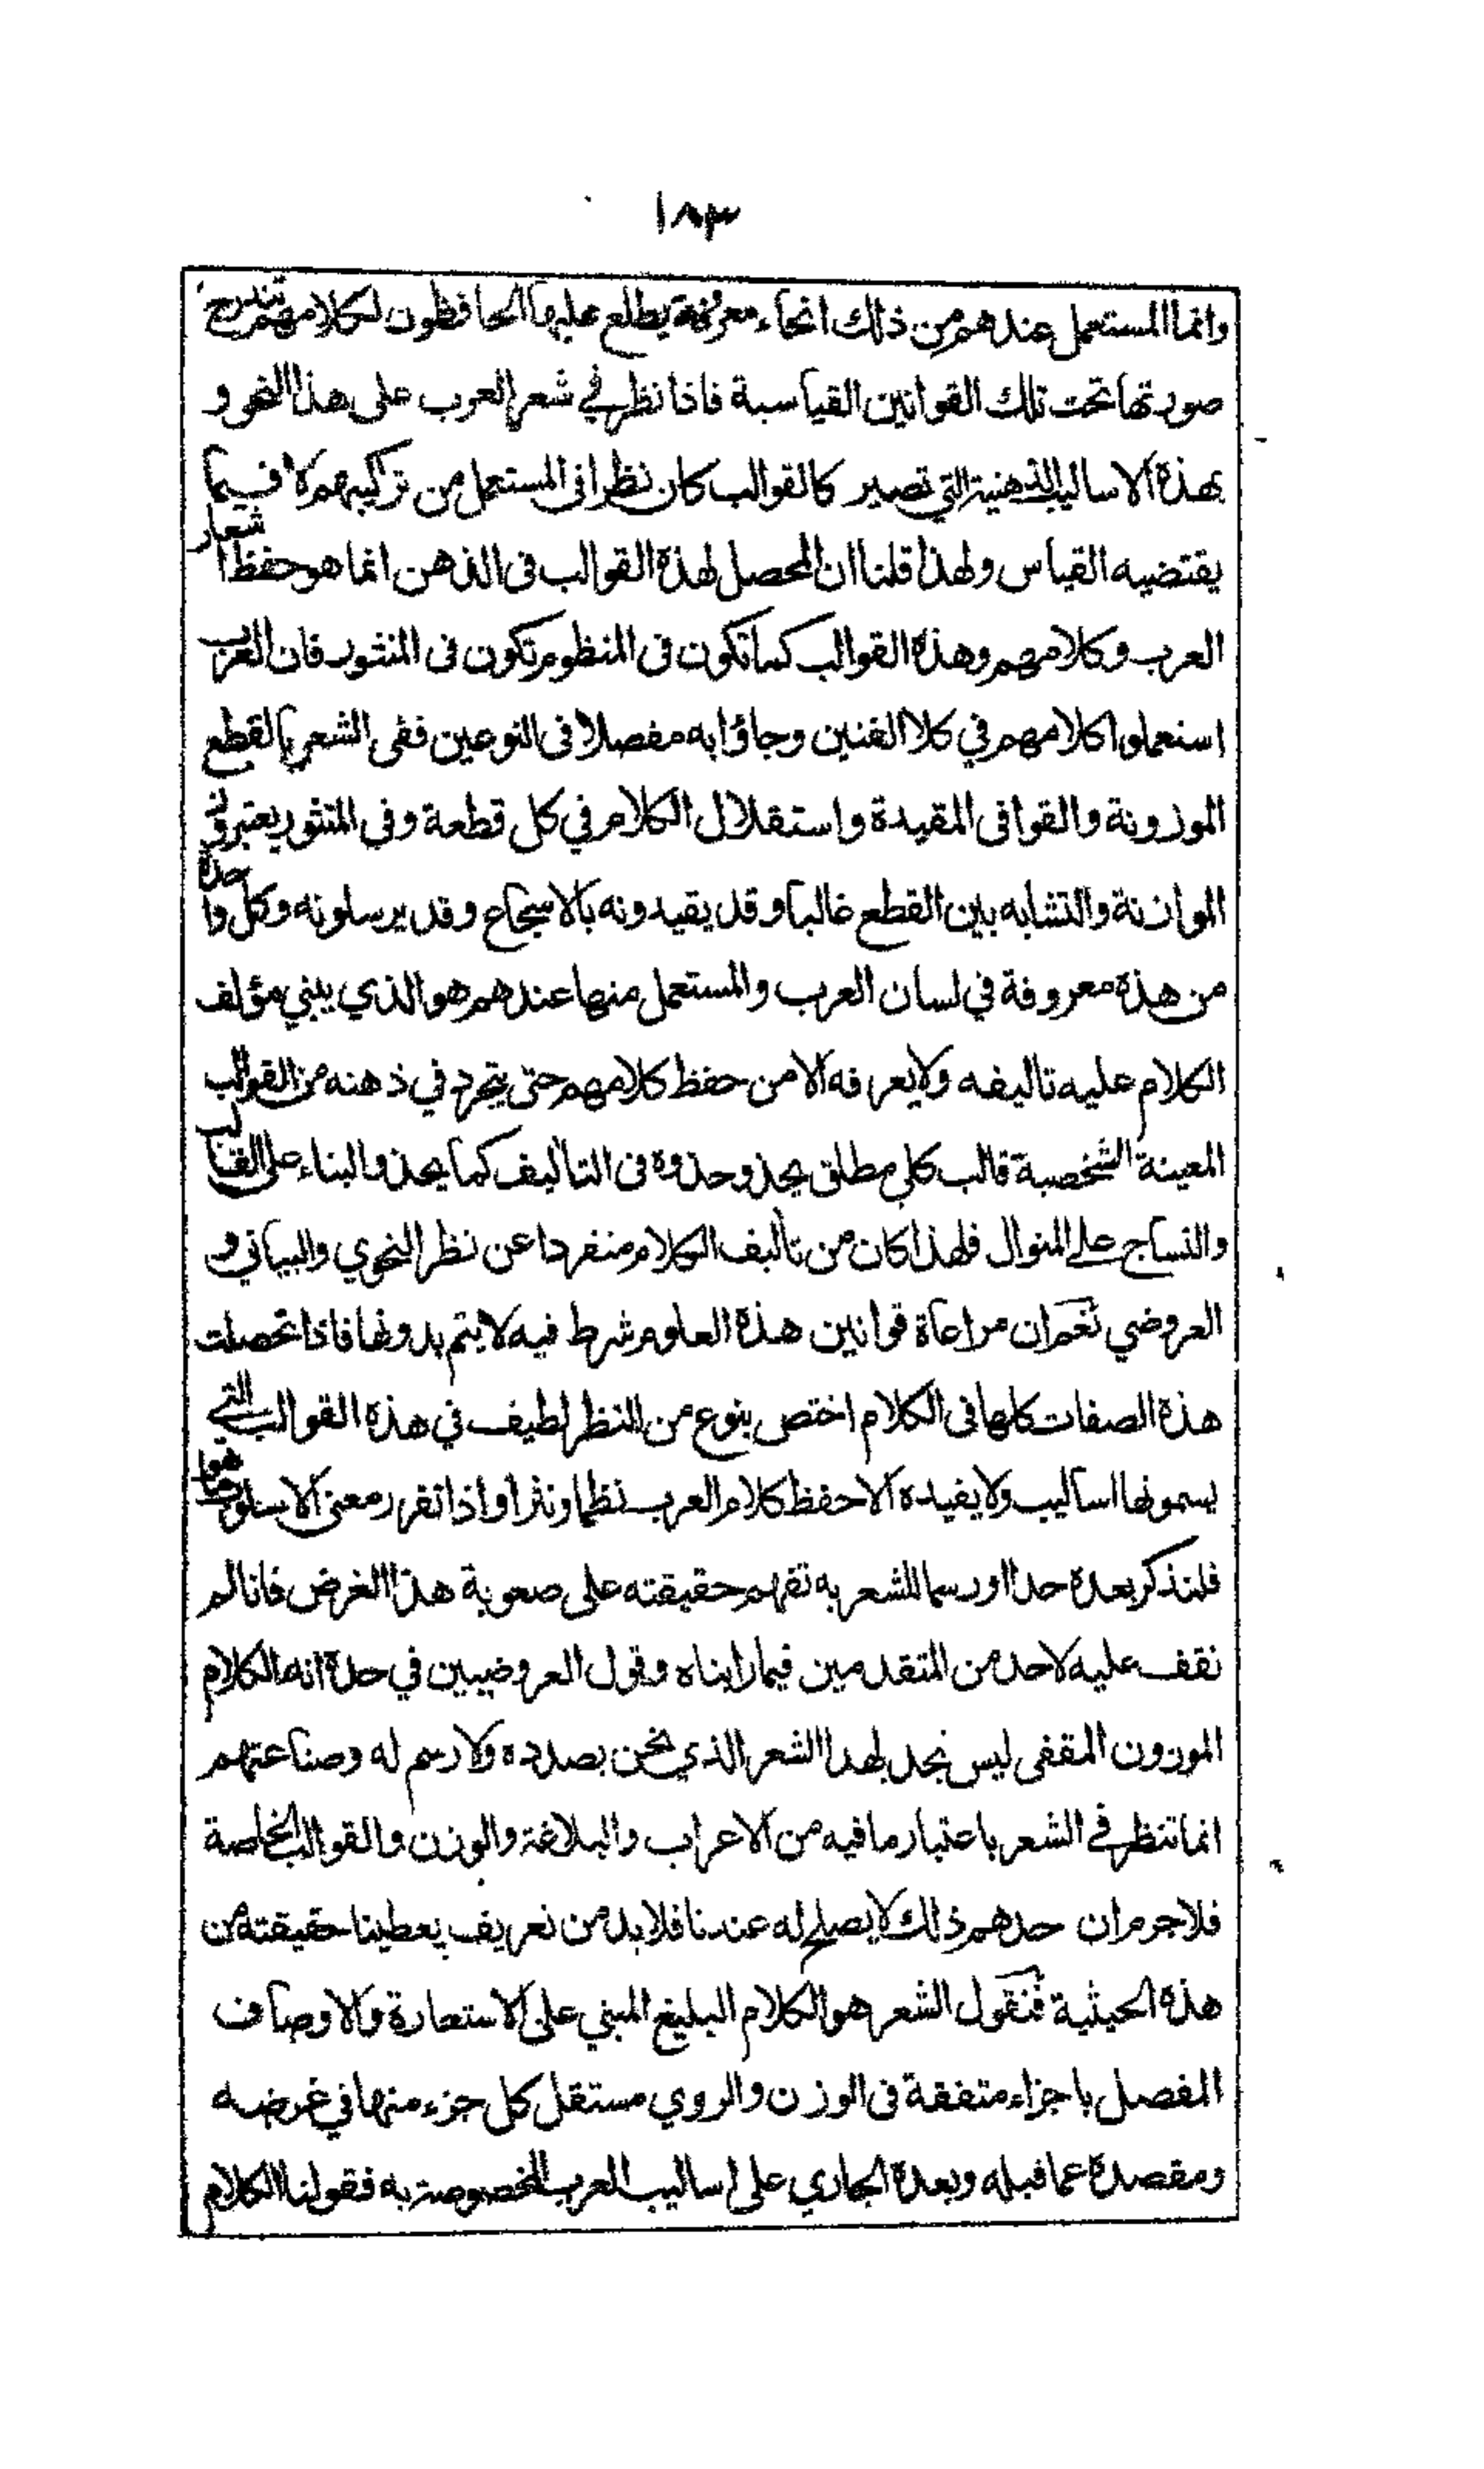 ١٨٣
وانما المستعمل عندهم من ذلك انحاء معروفة يطلع عليها الحافظون لكلامهم تندرج
صورتها تحت تلك القوانين القياسية فاذا نظر في شعر العرب على هذا النحو و
بهذه الاساليب الذهنية التي تصير كالقوالب كان نظرا فى المستعمل من تركيبهم لا فيما
يقتضيه القياس ولهذا قلنا ان المحصل لهذه القوالب فى الذهن انما هو حفظ اشعار
العرب وكلامهم وهذه القوالب كما تكون فى المنظوم تكون فى المنثور فان العرب
استعملوا كلامهم في كلا الفنين وجاؤا به مفصلا فى النوعين ففى الشعر بالقطع
الموزونة والقوافى المقيدة واستقلال الكلام في كل قطعة وفى المنثور يعتبرون
الموازنة والتشابه بين القطع غالبا وقد يقيدونه بالاسجاع وقد يرسلونه وكل واحدة
من هذه معروفة في لسان العرب والمستعمل منها عندهم هو الذي يبني مؤلف
الكلام عليه تاليفه ولا يعرفه الا من حفظ كلامهم حتى يتجرد في ذهنه من القوالب
المعينة الشخصية قالب كلي مطلق يحذو حذوه فى التاليف كما يحذو البناء على القالب
والنساج على المنوال فلهذا كان من تأليف الكلام منفردا عن نظر النحوي والبياني و
العروضي نعم ان مراعاة قوانين هذه العلوم شرط فيه لا يتم بدونها فاذا تحصلت
هذه الصفات كلها فى الكلام اختص بنوع من النظر لطيف في هذه القوالب التي
يسمونها اساليب ولا يفيده الا حفظ كلام العرب نظما ونثرا واذا تقرر معنى الاسلوب ما هو
فلنذكر بعده حدا او رسما للشعر به تفهم حقيقته على صعوبة هذا الغرض فانا لم
نقف عليه لاحد من المتقدمين فيما رايناه وقول العروضيين في حده انه الكلام
الموزون المقفى ليس نجد لهذا الشعر الذي نحن بصدده ولا رسم له وصناعتهم
انما تنظر في الشعر باعتبار ما فيه من الاعراب والبلاغة والوزن والقوالب الخاصة
فلا جرم ان حدهم ذلك لا يصلح له عندنا فلا بد من تعريف يعطينا حقيقته من
هذه الحيثية فنقول الشعر هو الكلام البليغ المبني على الاستعارة والاوصاف
المفصل باجزاء متفقة فى الوزن والروي مستقل كل جزء منها في غرضه
ومقصده عما قبله وبعده الجاري على اساليب العرب المخصوصة به فقولنا الكلام